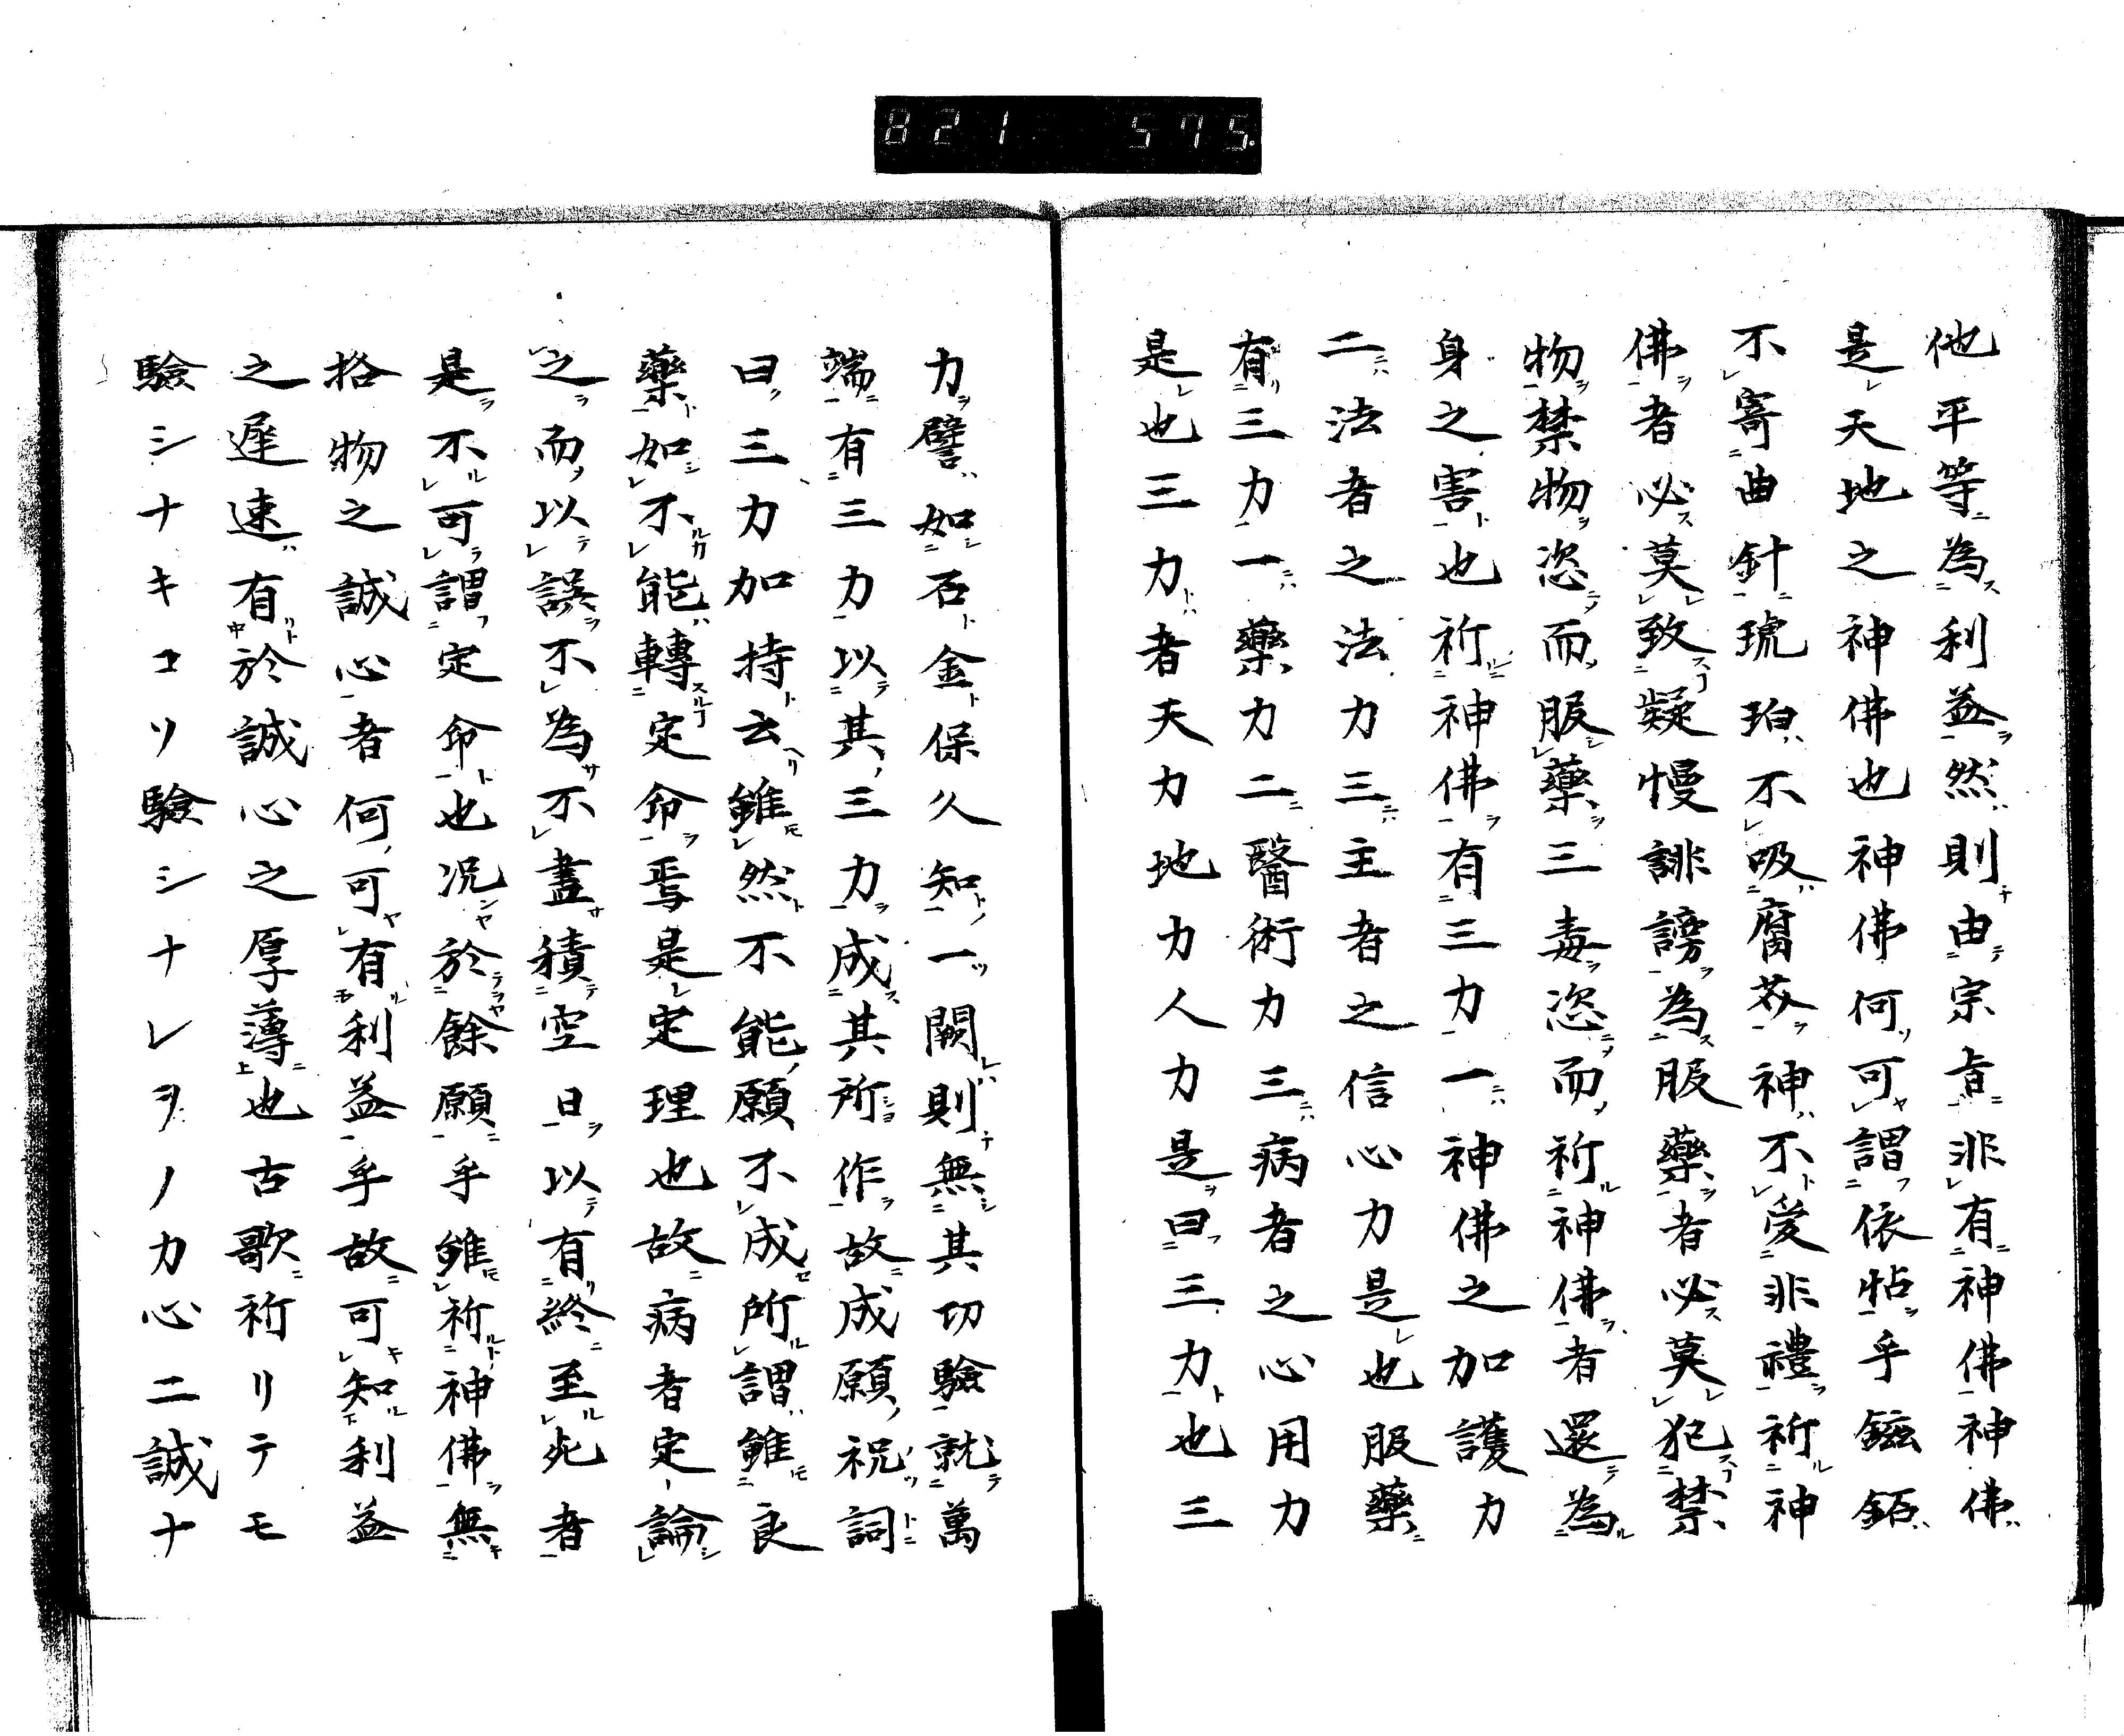 821 575
他平等為利益然則由宗旨非有神佛神佛
是天地之神佛也神佛何可謂依怙乎鎡鉐
不寄曲針琥珀不吸腐芥神不愛非禮祈神
佛者必莫致疑慢誹謗為服藥者必莫犯禁
物禁物恣而服藥三毒恣而祈神佛者還為
身之害也祈神佛有三力一神佛之加護力
二法者之法力三主者之信心力是也服藥
有三力一藥力二醫術力三病者之心用力
是也三力者天力地力人力是曰三力也三
力譬如石金保久知一闕則無其功驗就萬
端有三力以其三力成其所作故成願祝詞
曰三力加持云雖然不能願不成所謂雖良
藥如不能轉定命焉是定理也故病者定論
之而以誤不為不盡積空日以有終至死者
是不可謂定命也況於餘願乎雖祈神佛無
格物之誠心者何可有利益乎故可知利益
之遲速有於誠心之厚薄也古歌祈リテモ
驗シナキコソ驗シナレヲノカ心ニ誠ナ